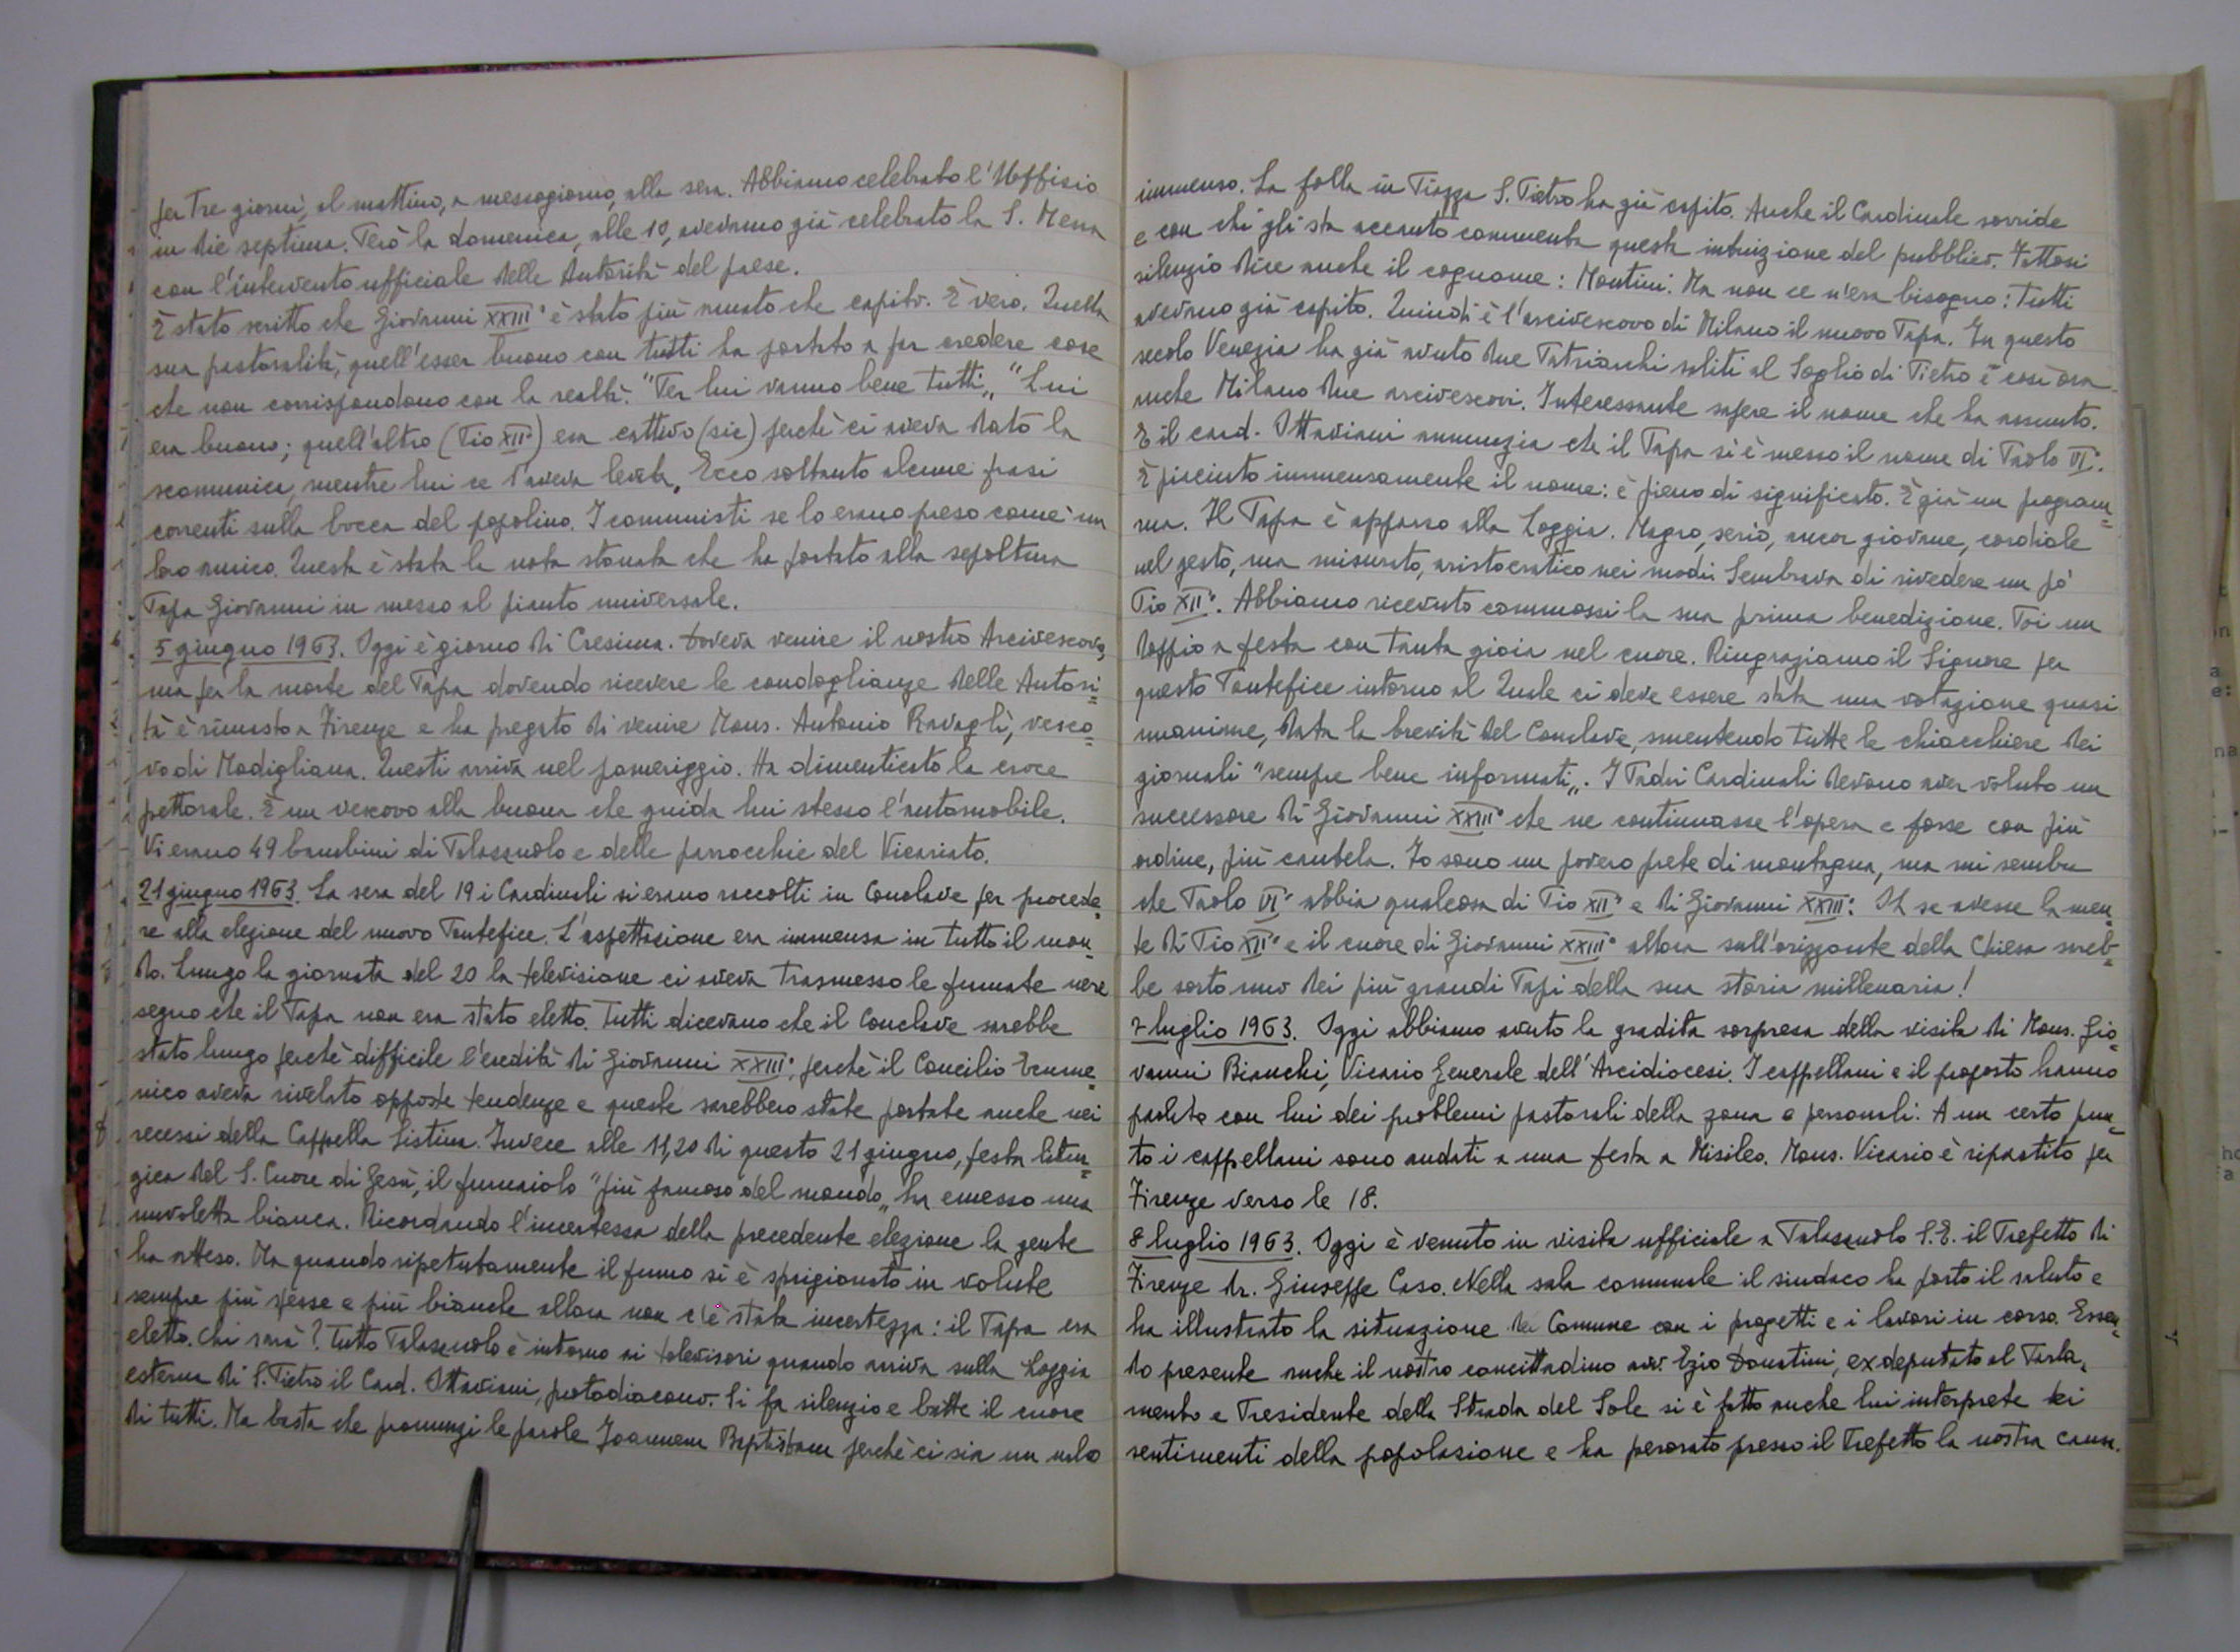 per tre giorni, al mattino, a mezzogiorno, alla sera. Abbiamo celebrato l'Uffizio
in die septima. Però la domenica, alle 10, avevamo già celebrato la S. Messa
con l'intervento ufficiale delle Autorità del paese.
È stato scritto che Giovanni XXIII° è stato più amato che capito. È vero. Quella
sua pastoralità, quell'esser buono con tutti ha portato a far credere cose
che non corrispondono con la realtà. "Per lui vanno bene tutti„ "Lui
era buono; quell'altro (Pio XII°) era cattivo (sic) perchè ci aveva dato la
scomunica, mentre lui ce l'aveva levata„ Ecco soltanto alcune frasi
correnti sulla bocca del popolino. I comunisti se lo erano preso come un
loro amico. Questa è stata la nota stonata che ha portato alla sepoltura
Papa Giovanni in mezzo al pianto universale.
5 giugno 1963. Oggi è giorno di Cresima. Doveva venire il nostro Arcivescovo,
ma per la morte del Papa dovendo ricevere le condoglianze delle Autori=
tà è rimasto a Firenze e ha pregato di venire Mons. Antonio Ravagli, vesco=
vo di Modigliana. Questi arriva nel pomeriggio. Ha dimenticato la croce
pettorale. È un vescovo alla buona che guida lui stesso l'automobile.
Vi erano 49 bambini di Palazzuolo e delle parrocchie del Vicariato.
21 giugno 1963. La sera del 19 i Cardinali si erano raccolti in Conclave per procede=
re alla elezione del nuovo Pontefice. L'aspettazione era immensa in tutto il mon=
do. Lungo la giornata del 20 la televisione ci aveva trasmesso le fumate nere
segno che il Papa non era stato eletto. Tutti dicevano che il Conclave sarebbe
stato lungo perchè difficile l'eredità di Giovanni XXIII°, perchè il Concilio Ecume=
nico aveva rivelato opposte tendenze e queste sarebbero state portate anche nei
recessi della Cappella Sistina. Invece alle 11,20 di questo 21 giugno, festa litur=
gica del S. Cuore di Gesù, il fumaiolo "più famoso del mondo„ ha emesso una
nuvoletta bianca. Ricordando l'incertezza della precedente elezione la gente
ha atteso. Ma quando ripetutamente il fumo si è sprigionato in volute
sempre più spesse e più bianche allora non c'è stata incertezza: il Papa era
eletto. Chi sarà? Tutto Palazzuolo è intorno ai televisori quando arriva sulla Loggia
esterna di S. Pietro il Card. Ottaviani, protodiacono. Si fa silenzio e batte il cuore
di tutti. Ma basta che pronunzi le parole Joannem Baptistam perchè ci sia un urlo
immenso. La folla in Piazza S. Pietro ha già capito. Anche il Cardinale sorride
e con chi gli sta accanto commenta questa intuizione del pubblico. Fattosi
silenzio dice anche il cognome: Montini. Ma non ce n'era bisogno: tutti
avevano già capito. Quindi è l'arcivescovo di Milano il nuovo Papa. In questo
secolo Venezia ha già avuto due Patriarchi saliti al Soglio di Pietro e così ora
anche Milano due arcivescovi. Interessante sapere il nome che ha assunto.
E il card. Ottaviani annunzia che il Papa si è messo il nome di Paolo VI°.
È piaciuto immensamente il nome: è pieno di significato. È già un program=
ma. Il Papa è apparso alla Loggia. Magro, serio, ancor giovane, cordiale
nel gesto, ma misurato, aristocratico nei modi. Sembrava di rivedere un pò
Pio XII°. Abbiamo ricevuto commossi la sua prima benedizione. Poi un
doppio a festa con tanta gioia nel cuore. Ringraziamo il Signore per
questo Pontefice intorno al quale ci deve essere stata una votazione quasi
unanime, data la brevità del Conclave, smentendo tutte le chiacchiere dei
giornali "sempre bene informati„. I Padri Cardinali devono aver voluto un
successore di Giovanni XXIII° che ne continuasse l'opera e forse con più
ordine, più cautela. Io sono un povero prete di montagna, ma mi sembra
che Paolo VI° abbia qualcosa di Pio XII° e di Giovanni XXIII°. Oh se avesse la men=
te di Pio XII° e il cuore di Giovanni XXIII° allora sull'orizzonte della Chiesa sareb=
be sorto uno dei più grandi Papi della sua storia millenaria!
7 luglio 1963. Oggi abbiamo avuto la gradita sorpresa della visita di Mons. Gio=
vanni Bianchi, Vicario Generale dell'Arcidiocesi. I cappellani e il proposto hanno
parlato con lui dei problemi pastorali della zona e personali. A un certo pun=
to i cappellani sono andati a una festa a Misileo. Mons. Vicario è ripartito per
Firenze verso le 18.
8 luglio 1963. Oggi è venuto in visita ufficiale a Palazzuolo S.E. il Prefetto di
Firenze Dr. Giuseppe Caso. Nella sala comunale il sindaco ha porto il saluto e
ha illustrato la situazione del Comune con i progetti e i lavori in corso. Essen=
do presente anche il nostro concittadino avv. Ezio Donatini, ex deputato al Parla=
mento e Presidente della Strada del Sole si è fatto anche lui interprete dei
sentimenti della popolazione e ha perorato presso il Prefetto la nostra causa.